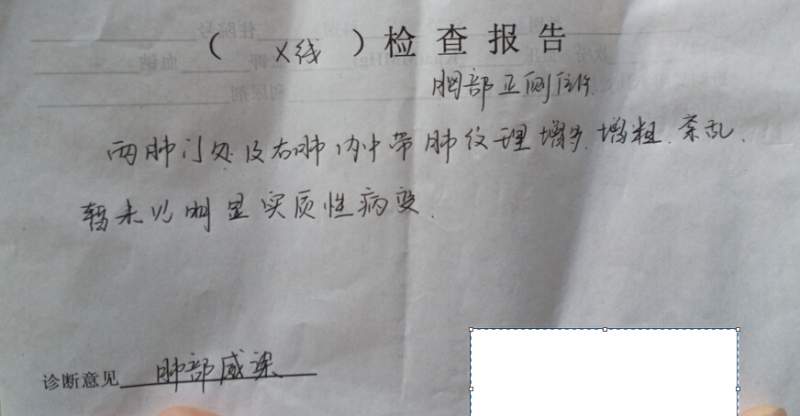 （ X线 ）检查报告
胸部正侧位片
两肺门处及右肺内中带肺纹理增多.增粗.紊乱.
暂未见明显实质性病变.
诊断意见 肺部感染